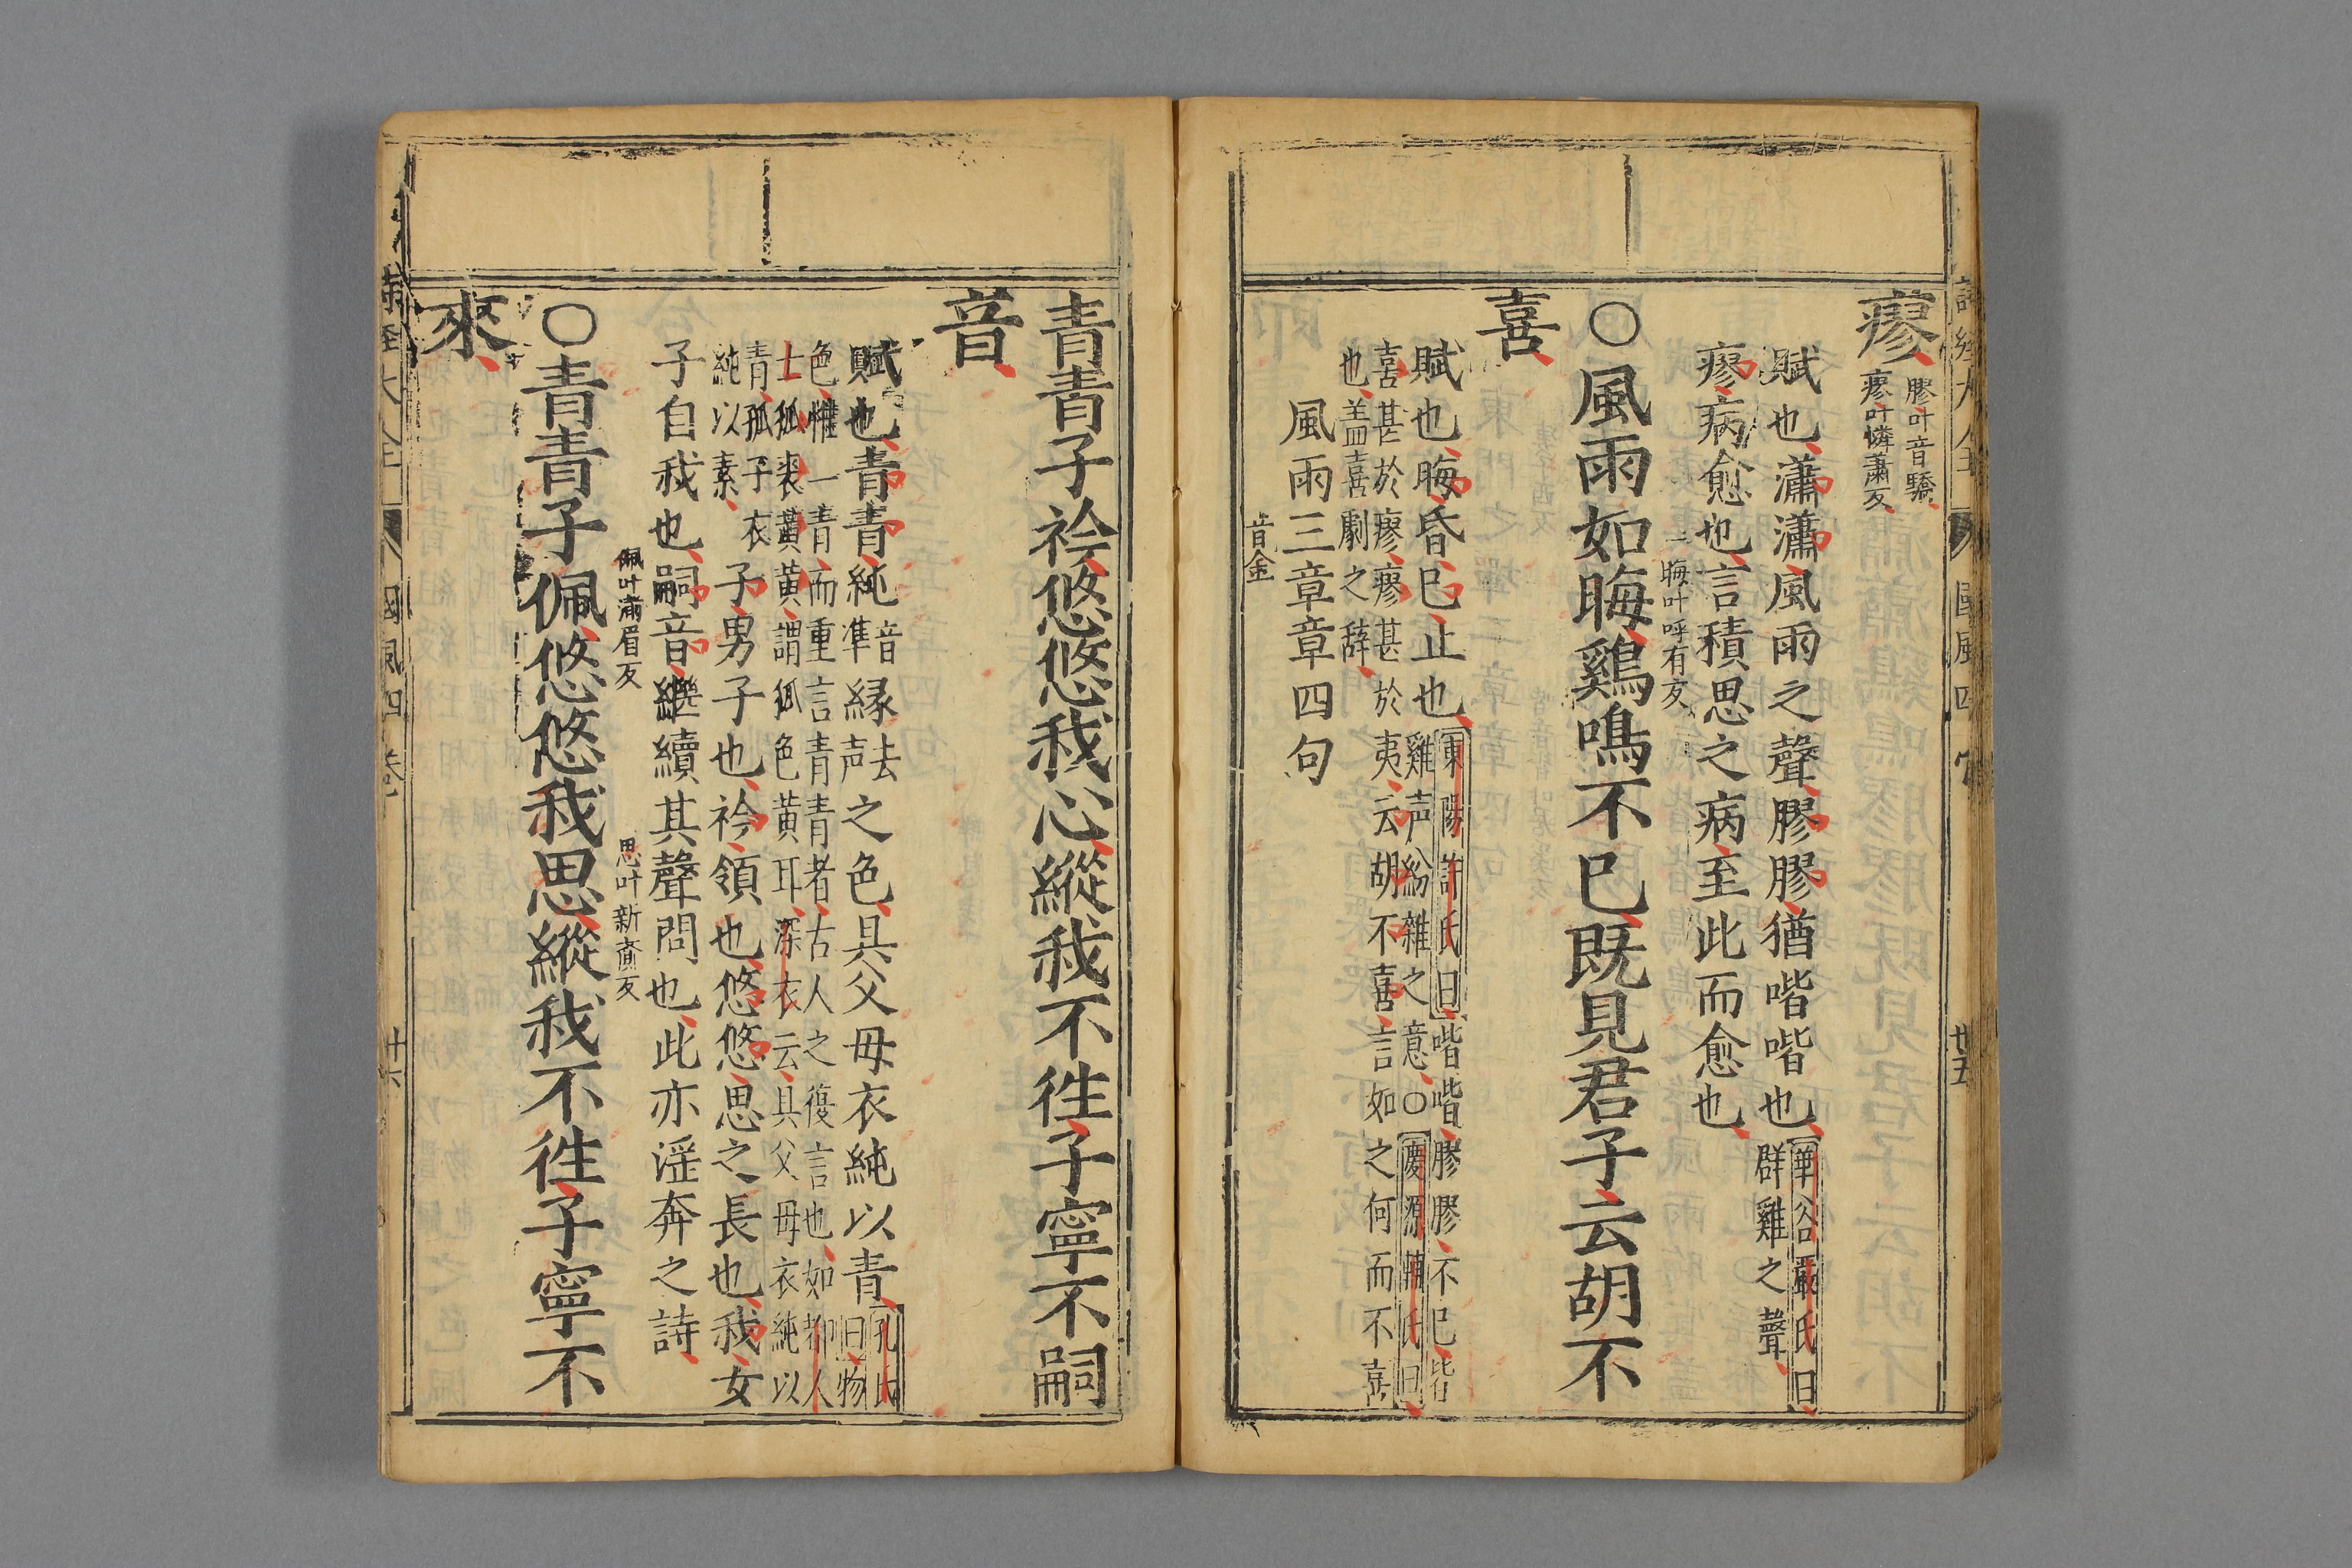 詩經大全
國風四
廿五
瘳
膠叶音驕
瘳叶憐蕭反
賦也瀟瀟風雨之聲膠膠猶喈喈也
華谷嚴氏曰
群雞之聲
瘳病愈也言積思之病至此而愈也
晦叶呼有反
○風雨如晦鷄鳴不已既見君子云胡不
喜
賦也晦昏已止也
東陽許氏曰喈喈膠膠不已皆
雞声紛雜之意○慶源輔氏曰
喜甚於瘳瘳甚於夷云胡不喜言如之何而不喜
也盖喜劇之辞
風雨三章章四句
音金
青青子衿悠悠我心縱我不徃子寧不嗣
音
賦也青青純
音
準
縁
去
声
之色具父母衣純以青
孔氏
曰物
色惟一青而重言青青者古人之復言也如都人
士狐裘黃黃謂狐色黃耳深衣云具父母衣純以
青孤子衣
純以素
子男子也衿領也悠悠思之長也我女
子自我也嗣音繼續其聲問也此亦淫奔之詩
佩叶蒲眉反
思叶新齎反
○青青子佩悠悠我思縱我不徃子寧不
來
國風四
廿六